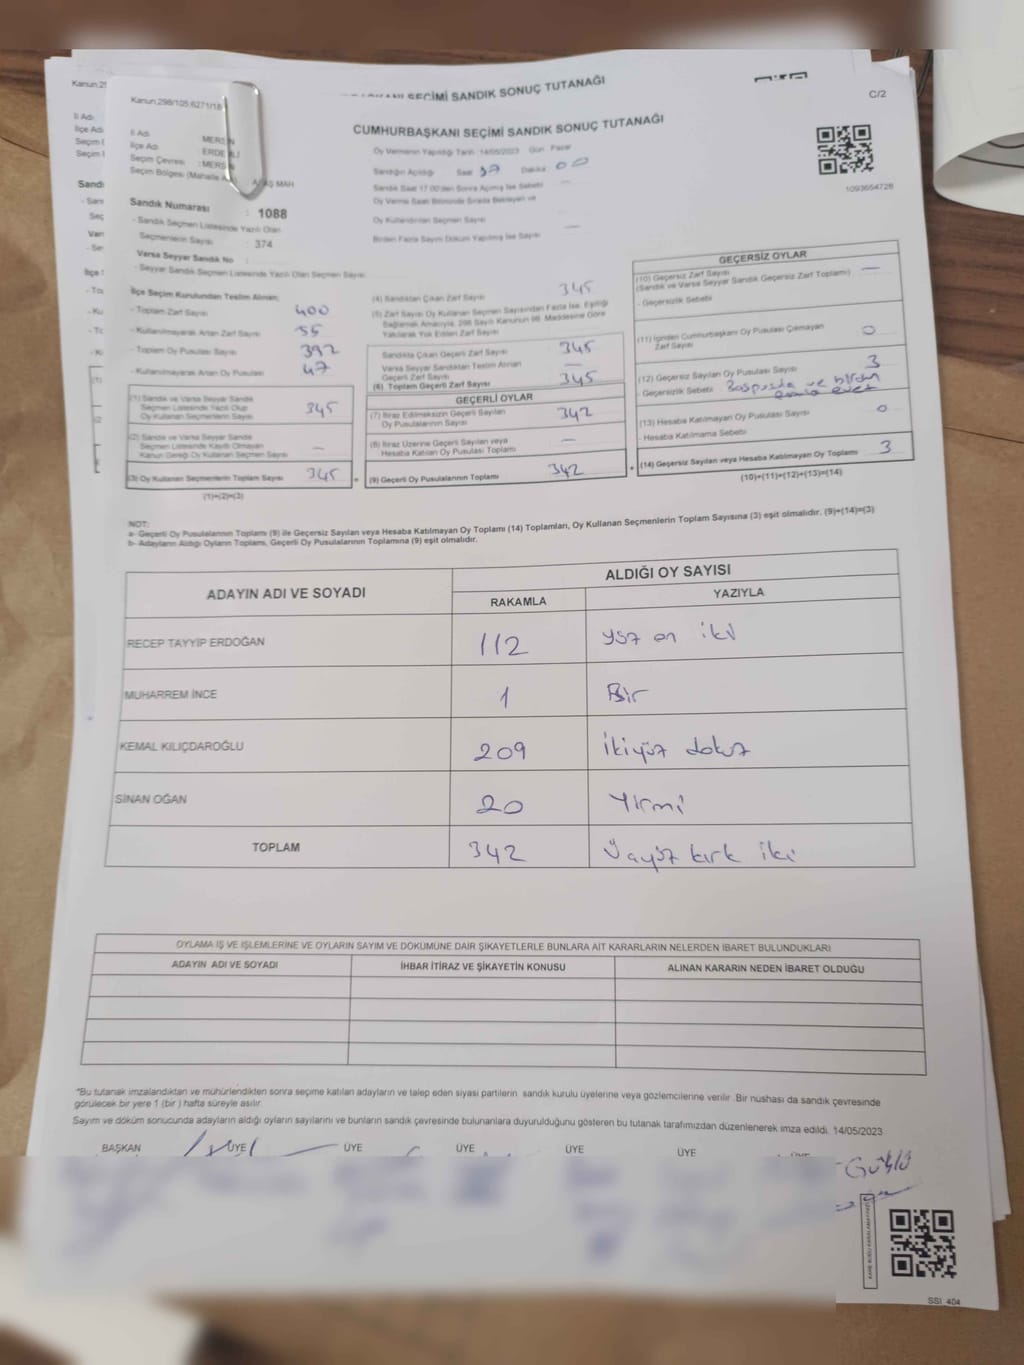 Kanun:298/105;6271/18
SEÇİMİ SANDIK SONUÇ TUTANAĞI
C/2
CUMHURBAŞKANI SEÇİMİ SANDIK SONUÇ TUTANAĞI
İl Adı
İlçe Adı
Seçim Çevresi : MERSİN
Seçim Bölgesi (Mahalle
AŞ MAH
Oy Vermenin Yapıldığı Tarih: 14/05/2023 Gün: Pazar
Sandığın Açıldığı Saat Dakika 00
Sandık Saat 17:00'den Sonra Açılmış İse Sebebi —
Oy Verme Saati Bitiminde Sırada Bekleyen ve
Oy Kullandırılan Seçmen Sayısı —
Birden Fazla Sayım Döküm Yapılmış İse Sayısı
1093654728
Sandık Numarası : 1088
- Sandık Seçmen Listesinde Yazılı Olan
Seçmenlerin Sayısı : 374
Varsa Seyyar Sandık No :
- Seyyar Sandık Seçmen Listesinde Yazılı Olan Seçmen Sayısı:
İlçe Seçim Kurulundan Teslim Alınan;
- Toplam Zarf Sayısı 400
- Kullanılmayarak Artan Zarf Sayısı 55
- Toplam Oy Pusulası Sayısı 392
- Kullanılmayarak Artan Oy Pusulası 47
(1) Sandık ve Varsa Seyyar Sandık
Seçmen Listesinde Yazılı Olup
Oy Kullanan Seçmenlerin Sayısı 345
(2) Sandık ve Varsa Seyyar Sandık
Seçmen Listesinde Kayıtlı Olmayan
Kanun Gereği Oy Kullanan Seçmen Sayısı —
(3) Oy Kullanan Seçmenlerin Toplam Sayısı 345
(1)+(2)=(3)
(4) Sandıktan Çıkan Zarf Sayısı 345
(5) Zarf Sayısı Oy Kullanan Seçmen Sayısından Fazla İse, Eşitliği
Sağlamak Amacıyla, 298 Sayılı Kanunun 98. Maddesine Göre
Yakılarak Yok Edilen Zarf Sayısı
Sandıkta Çıkan Geçerli Zarf Sayısı 345
Varsa Seyyar Sandıktan Teslim Alınan
Geçerli Zarf Sayısı —
(6) Toplam Geçerli Zarf Sayısı 345
GEÇERLİ OYLAR
(7) İtiraz Edilmeksizin Geçerli Sayılan
Oy Pusulalarının Sayısı 342
(8) İtiraz Üzerine Geçerli Sayılan veya
Hesaba Katılan Oy Pusulası Toplamı —
(9) Geçerli Oy Pusulalarının Toplamı 342
GEÇERSİZ OYLAR
(10) Geçersiz Zarf Sayısı —
(Sandık ve Varsa Seyyar Sandık Geçersiz Zarf Toplamı)
- Geçersizlik Sebebi:
(11) İçinden Cumhurbaşkanı Oy Pusulası Çıkmayan
Zarf Sayısı 0
(12) Geçersiz Sayılan Oy Pusulası Sayısı 3
- Geçersizlik Sebebi: ve birden
evet
(13) Hesaba Katılmayan Oy Pusulası Sayısı 0
- Hesaba Katılmama Sebebi:
(14) Geçersiz Sayılan veya Hesaba Katılmayan Oy Toplamı 3
(10)+(11)+(12)+(13)=(14)
NOT:
a- Geçerli Oy Pusulalarının Toplamı (9) ile Geçersiz Sayılan veya Hesaba Katılmayan Oy Toplamı (14) Toplamları, Oy Kullanan Seçmenlerin Toplam Sayısına (3) eşit olmalıdır. (9)+(14)=(3)
b- Adayların Aldığı Oyların Toplamı, Geçerli Oy Pusulalarının Toplamına (9) eşit olmalıdır.
ADAYIN ADI VE SOYADI
ALDIĞI OY SAYISI
RAKAMLA YAZIYLA
RECEP TAYYİP ERDOĞAN 112 Yüz on iki
MUHARREM İNCE 1 Bir
KEMAL KILIÇDAROĞLU 209 İkiyüz dokuz
SİNAN OĞAN 20 Yirmi
TOPLAM 342 Üçyüz kırk iki
OYLAMA İŞ VE İŞLEMLERİNE VE OYLARIN SAYIM VE DÖKÜMÜNE DAİR ŞİKAYETLERLE BUNLARA AİT KARARLARIN NELERDEN İBARET BULUNDUKLARI
ADAYIN ADI VE SOYADI İHBAR İTİRAZ VE ŞİKAYETİN KONUSU ALINAN KARARIN NEDEN İBARET OLDUĞU
*Bu tutanak imzalandıktan ve mühürlendikten sonra seçime katılan adayların ve talep eden siyasi partilerin sandık kurulu üyelerine veya gözlemcilerine verilir. Bir nüshası da sandık çevresinde
görülecek bir yere 1 (bir ) hafta süreyle asılır.
Sayım ve döküm sonucunda adayların aldığı oyların sayılarını ve bunların sandık çevresinde bulunanlara duyurulduğunu gösteren bu tutanak tarafımızdan düzenlenerek imza edildi. 14/05/2023
BAŞKAN ÜYE ÜYE ÜYE ÜYE ÜYE
Güçlü
SSI 404